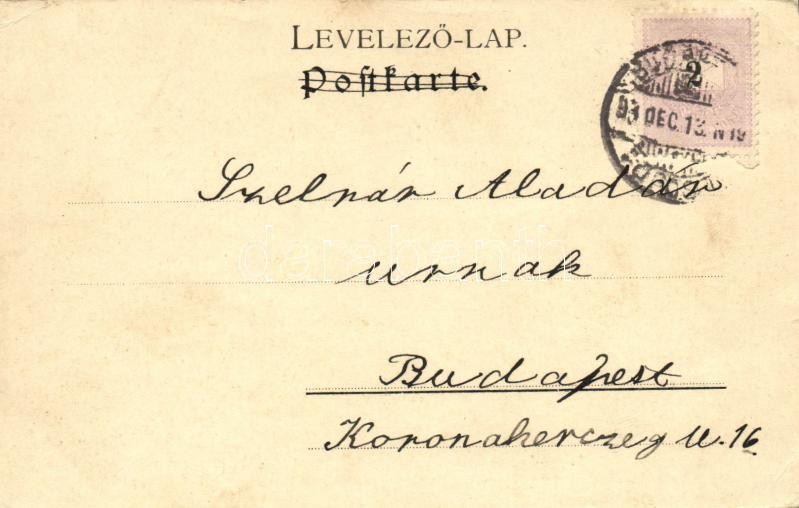 LEVELEZŐ-LAP.
Postkarte.
2
DEC. 13. N 19
Szelnár Aladár
urnak
Budapest
Koronaherczeg u. 16
darabanth